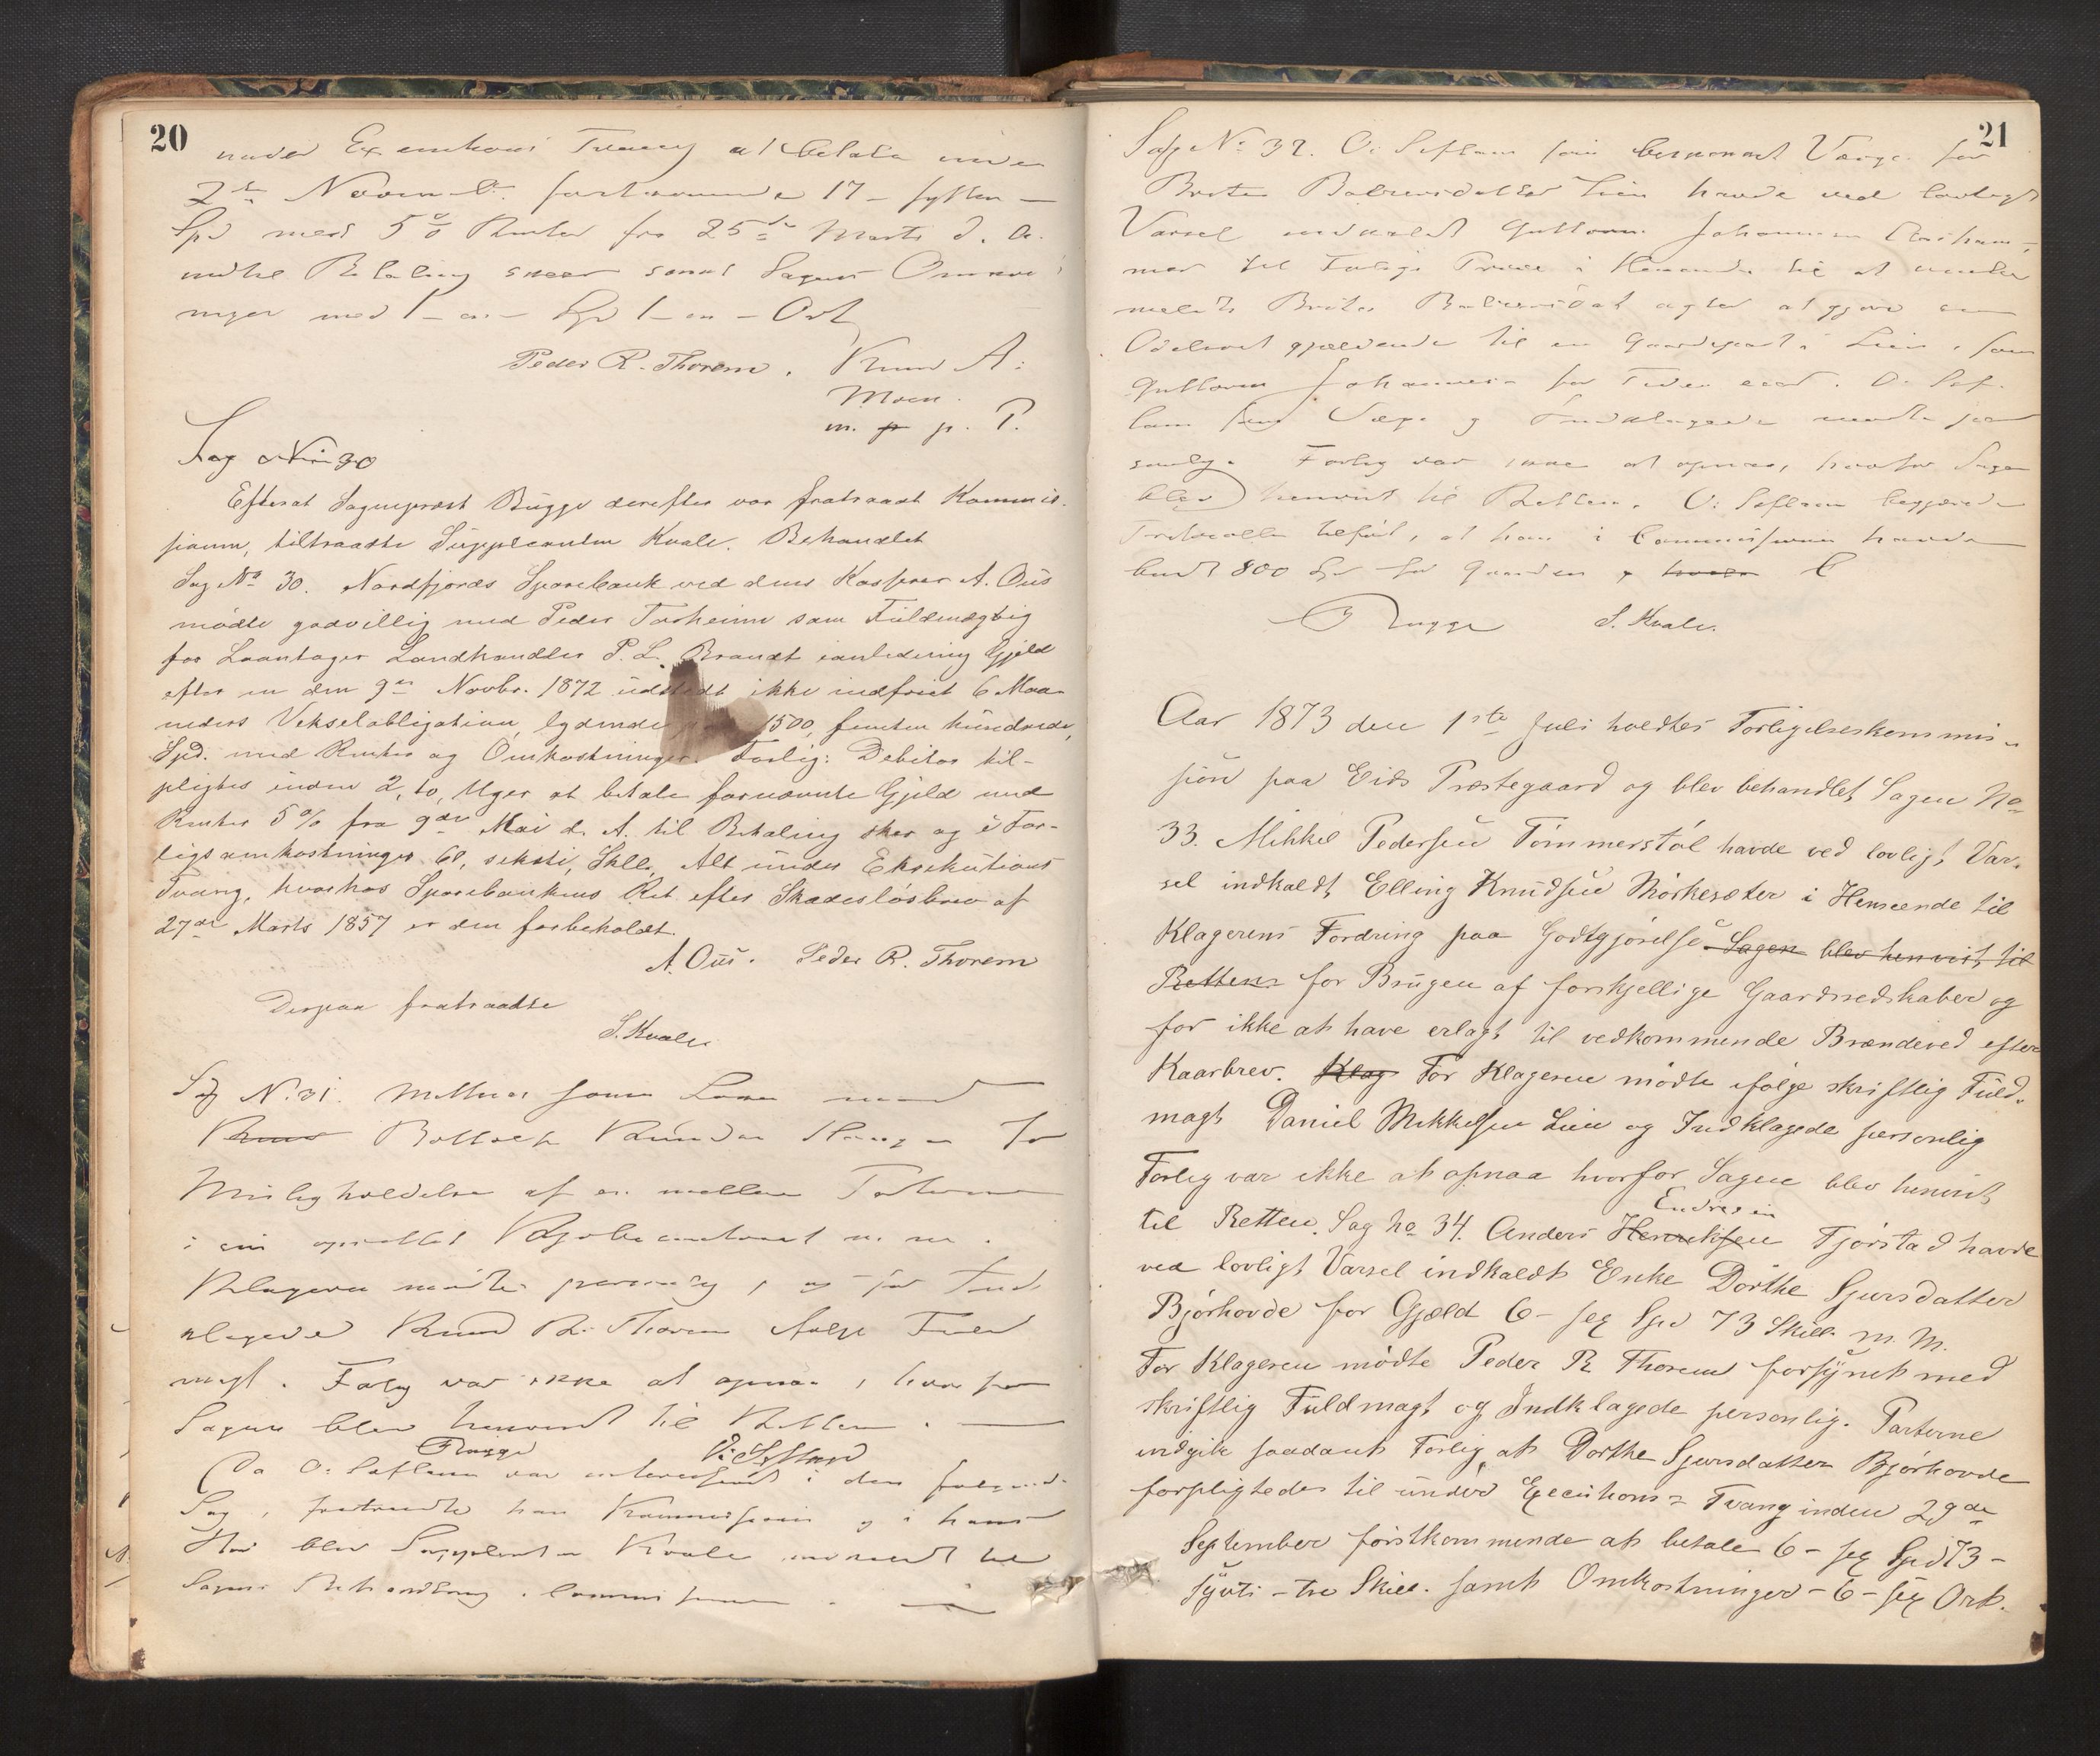 20
under Executions Tvang at betale inden
2de Novembr. førstkommende 17 - sytten -
Spd med 5 % Renter fra 25de Marts d. A.
indtil Betaling skeer samt Sagens Omkost-
ninger med 1 - en - Spd 1 - en - Ort
Peder R. Thorem. Knud A:
Moen.
m. p. P.
Sag No 30
Efterat Sogneprest Bugge derefter var fratraadt Kommis-
sionen, tiltraadte Suppleanten Kvale. Behandlet
Sag No 30. Nordfjords Sparebank ved dens Kasserer A. Ous
mødte godvillig med Peder Torheim som Fuldmægtig
for Laantager Landhandler P. L. Brandt ianledning Gjeld
efter en den 9de Novbr. 1872 udstedt ikke indfriet 6 Maa-
neders Vekselobligation, lydende 1500, femten hundrede,
Spd. med Renter og Omkostninger. Forlig: Debitor til-
pligtes inden 2, to, Uger at betale fornævnte Gjeld med
Renter 5% fra 9de Mai d. A. til Betaling sker og i For-
ligsomkostninger 60, seksti, Skll, Alt under Eksekutions
Tvang, hvorhos Sparebankens Ret efter Skadesløsbrev af
27de Marts 1857 er den forbeholdt.
A. Ous. Peder R. Thorem
Derpaa fratraadte
S. Kvale.
Sag No 31. som med
Knud Knudsen Haugen for
Misligholdelse af en mellem Parterne
i oprettet m. m.
Klageren mødte personlig, og for Ind-
klagede Knud R. Thorem ifølge Fuld-
magt. Forlig var ikke at opnaa, hvorfor
Sagen blev henvist til Retten.
Bugge O: Seftland
Da O: Seftland var interesseret i den følgende
Sag, fratraadte han Kommissionen og i hans
Sted blev Suppleanten Kvale indkaldt til
Sagens Behandling i Commissionen.
21
Sag No 32. O: Seftland som beskikket Værge for
Brite Lien havde ved lovligt
Varsel indkaldt Guttorm Johannesen
til Forligs Prøve i Henseende til at
meldte Brite agter at gjøre sin
Odelsret gjældende til en Gaardspart i Lien, som
Guttorm Johannesen for Tiden eier. O: Seft-
land som Værge og Indklagede mødte per-
sonlig. Forlig var ikke at opnaa, hvorfor Sagen
blev henvist til Retten. O: Seftland begjærede
Protocollen tilført, at han i Commissionen havde
budt 800 Spd for Gaarden
Bugge S. Kvale.
Aar 1873 den 1ste Juli holdtes Forligelseskommis-
sion paa Eids Præstegaard og blev behandlet Sagen No
33. Mikkel Pedersen Tømmerstøl havde ved lovligt Var-
sel indkaldt Elling Knudsen Mørkesæter i Henseende til
Klagerens Fordring paa Godtgjørelse Sagen blev henvist til
Retten for Brugen af forskjellige Gaardsredskaber og
for ikke at have erlagt til vedkommende Brændeved efter
Kaarbrev. Klag For Klageren mødte ifølge skriftlig Fuld-
magt Daniel Mikkelsen Lien og Indklagede personlig
Forlig var ikke at opnaa hvorfor Sagen blev henvist
til Retten. Sag No 34. Anders Henriksen Endresen Fjørstad havde
ved lovligt Varsel indkaldt Enke Dorthe Sjursdatter
Bjørhovde for Gjæld 6 - sex Spd 73 Skill m. M.
For Klageren mødte Peder R Thorem forsynet med
skriftlig Fuldmagt og Indklagede personlig. Parterne
indgik saadant Forlig, at Dorthe Sjursdatter Bjørhovde
forpligtedes til under Executions-Tvang inden 29de
September førstkommende at betale 6 - sex Spd 73 -
sytti - tre Skill. samt Omkostninger - 6 - sex Ort.